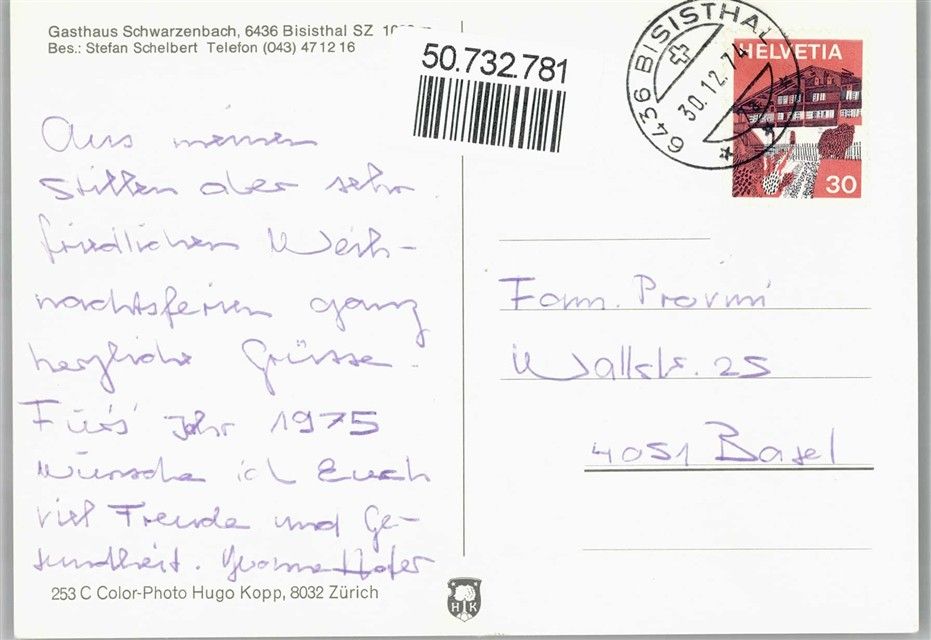 Gasthaus Schwarzenbach, 6436 Bisisthal SZ
Bes.: Stefan Schelbert Telefon (043) 47 12 16
50.732.781
6436 BISISTHAL
30.12.74
HELVETIA
30
Aus meinen
stillen aber sehr
friedlichen Weih-
nachtsferien ganz
herzliche Grüsse.
Für's Jahr 1975
wünsche ich Euch
viel Freude und Ge-
sundheit. Yvonne Hofer
Fam. Provini
Wallstr. 25
4051 Basel
253 C Color-Photo Hugo Kopp, 8032 Zürich
H K